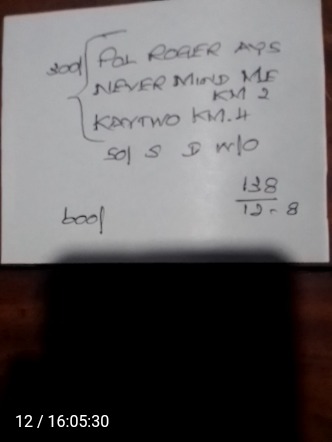 300/ POL ROGER AYS
NEVER MIND ME
KM 2
KAYTWO KM. 4
50/ S D W/O
138
12-8
600/
12 / 16:05:30